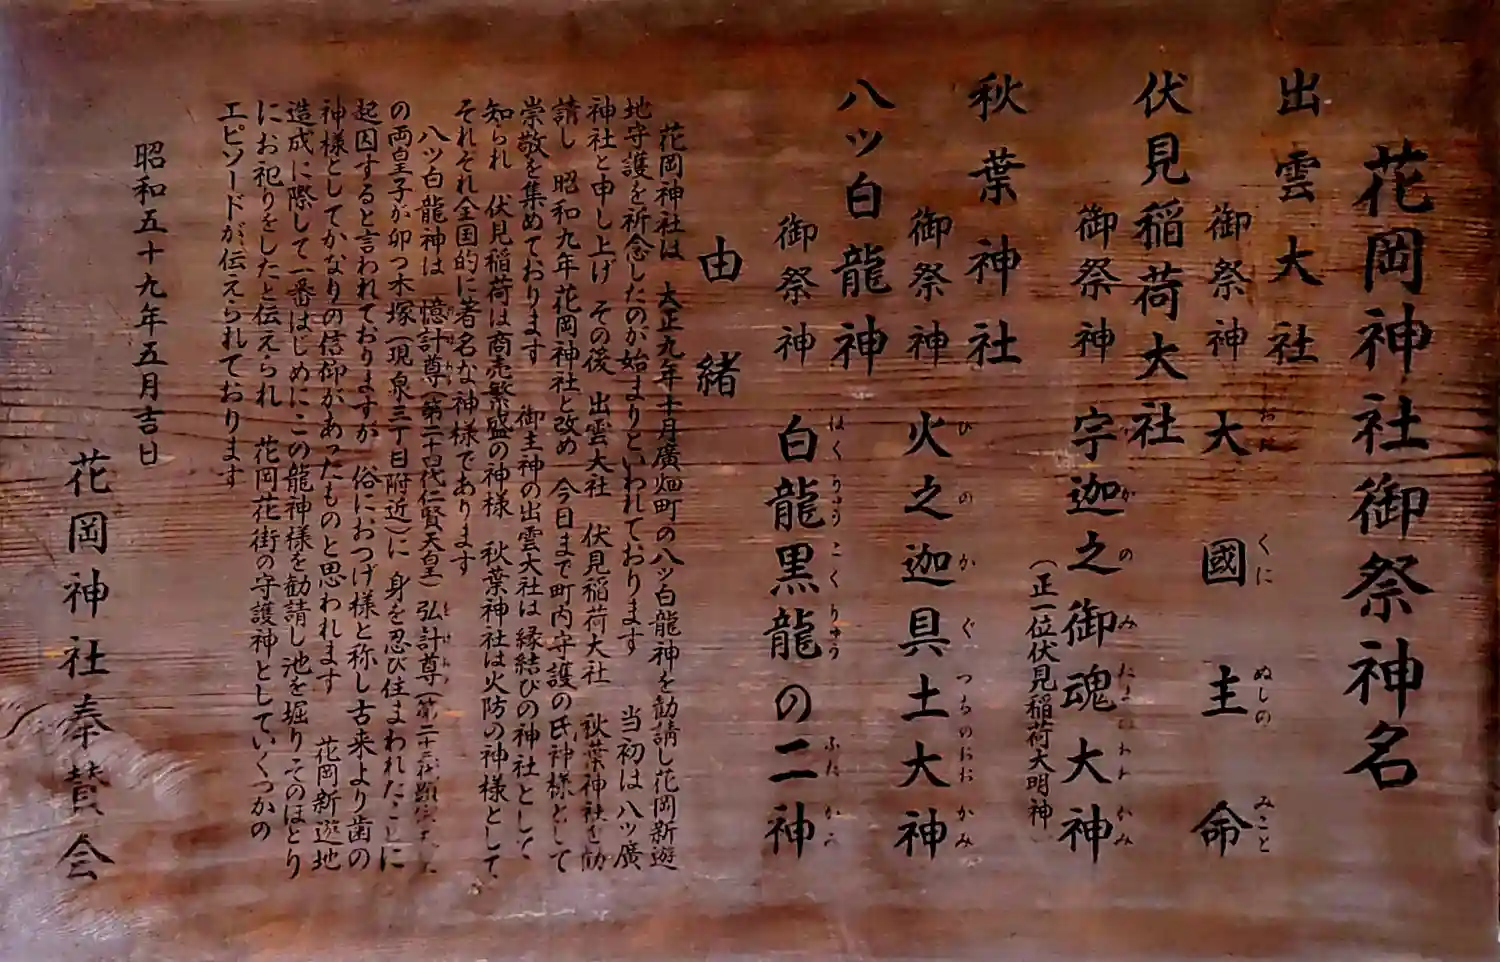 花岡神社御祭神名
出雲大社
御祭神 大國主命
おお くに ぬしの みこと
伏見稲荷大社
御祭神 宇迦之御魂大神
かのみ かみ
(正一位伏見稲荷大明神)
秋葉神社
御祭神 火之迦具土大神
ひのかぐつちのおおかみ
八ツ白龍神
御祭神 白龍黒龍の二神
はくりゅうこくりゅう ふた
由緒
花岡神社は 大正九年十月廣畑町の八ッ白龍神を勧請し花岡新遊
地守護を祈念したのが始まりといわれております 当初は八ッ廣
神社と申し上げ その後 出雲大社 伏見稲荷大社 秋葉神社を勧
請し 昭和九年花岡神社と改め 今日まで町内守護の氏神様として
崇敬を集めております 御主神の出雲大社は縁結びの神社として
知られ 伏見稲荷は商売繁盛の神様 秋葉神社は火防の神様として
それぞれ全国的に著名な神様であります
八ツ白龍神は 憶計尊(第二十四代仁賢天皇) 弘計尊(第二十三代顕
の両皇子が卯つ木塚(現泉三丁目附近)に 身を忍び住まわれたことに
起因すると言われておりますが 俗におつげ様と称し古来より歯の
神様としてかなりの信仰があったものと思われます 花岡新遊地
造成に際して一番はじめにこの龍神様を勧請し池を堀りそのほとり
にお祀りをしたと伝えられ 花岡花街の守護神としていくつかの
エピソードが伝えられております
昭和五十九年五月吉日
花岡神社奉賛会